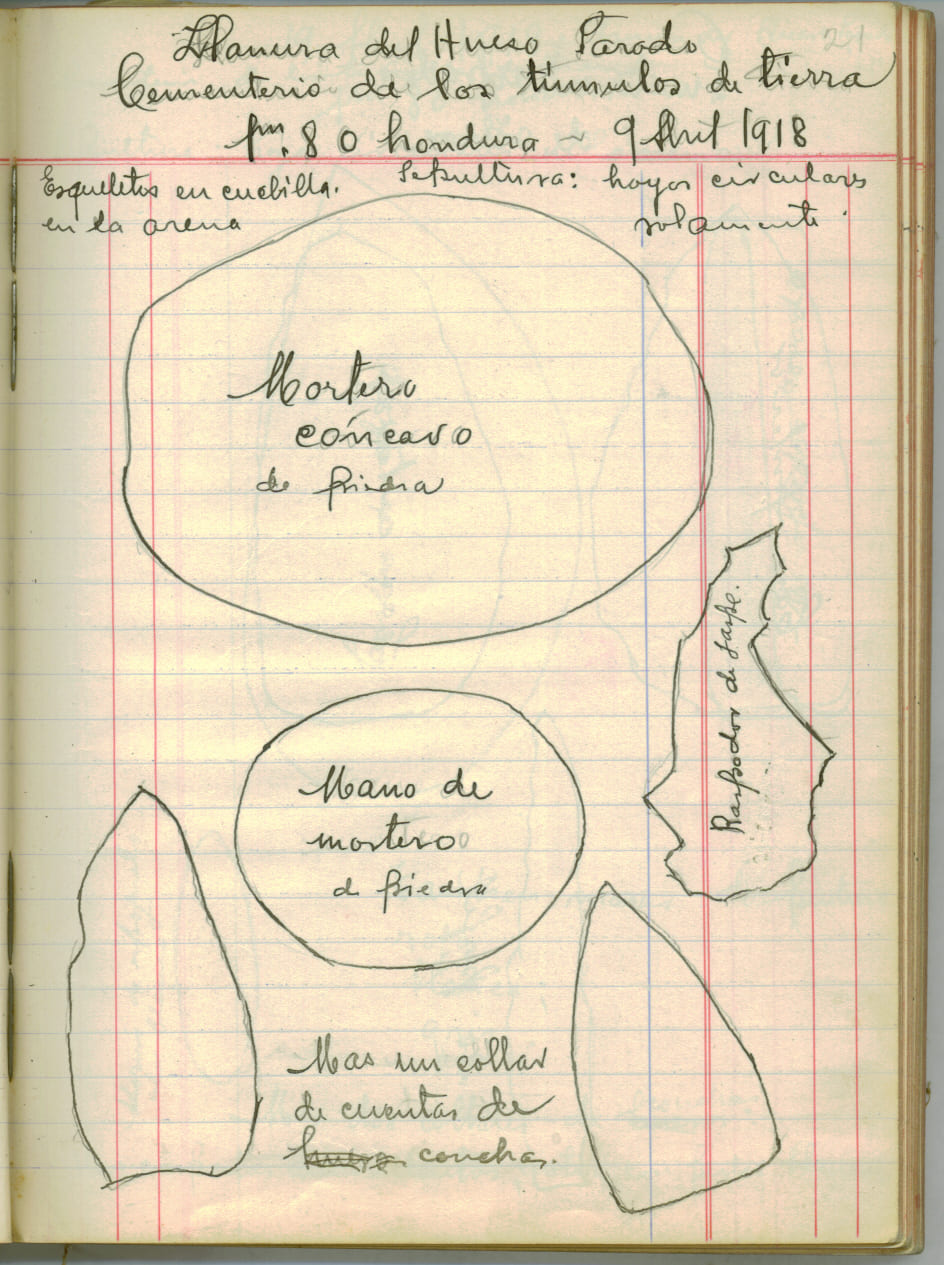 21
Llanura del Hueso Parado
Cementerio de los túmulos de tierra
1m. 80 hondura ~ 9 Abril 1918
Esqueletos en cuclilla.
en la arena
Sepultura: hoyos circulares
solamente.
Mortero
cóncavo
de piedra
Raspador de jaspe.
Mano de
mortero
de piedra
Mas un collar
de cuentas de
hueso conchas.